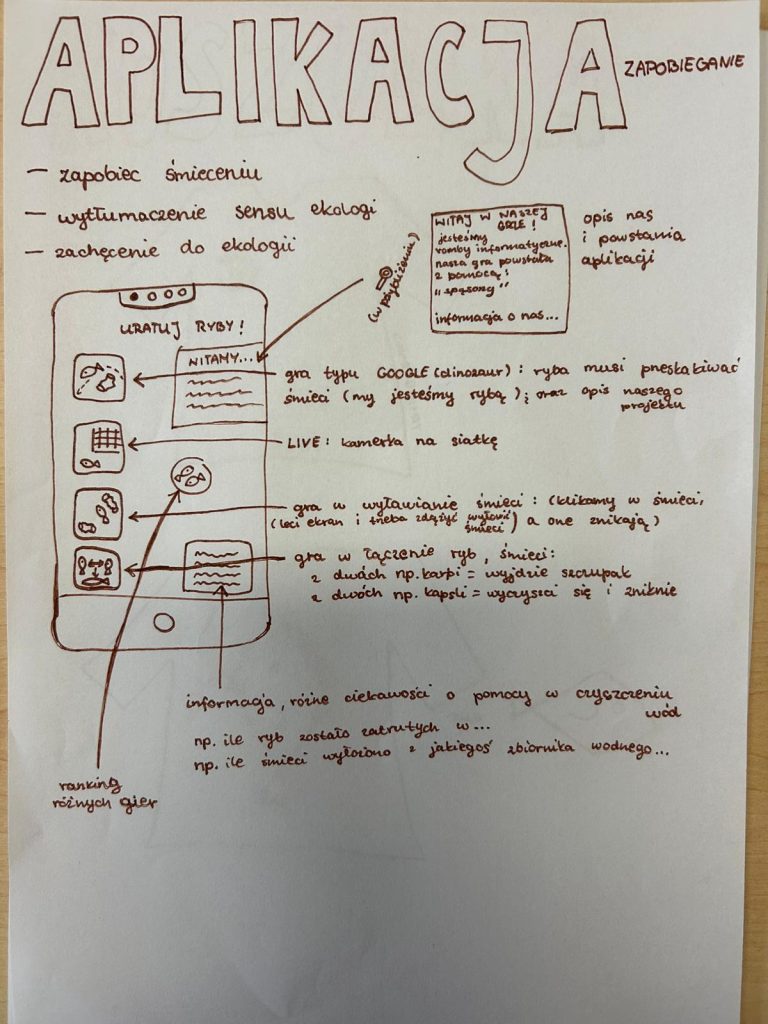 APLIKACJA
ZAPOBIEGANIE
– zapobiec śmieceniu
– wytłumaczenie sensu ekologi
– zachęcenie do ekologii
WITAJ W NASZEJ
GRZE !
jesteśmy
romby informatyczne.
nasza gra powstała
z pomocą:
informacja o nas...
opis nas
i powstania
aplikacji
(w przybliżeniu)
URATUJ RYBY!
WITAMY...
gra typu GOOGLE (dinozaur) : ryba musi przeskakiwać
śmieci (my jesteśmy rybą ); oraz opis naszego
projektu
LIVE: kamerka na siatkę
gra w wyławianie śmieci : (klikamy w śmieci,
(leci ekran i trzeba zdążyć wyłowić śmieci) a one znikają)
gra w łączenie ryb, śmieci:
z dwóch np. karpi = wyjdzie szczupak
z dwóch np. kapsli = wyczyszci się i zniknie
informacja, różne ciekawości o pomocy w czyszczeniu
wód
np. ile ryb zostało zatrutych w...
np. ile śmieci wyłożono z jakiegoś zbiornika wodnego...
ranking
różnych gier